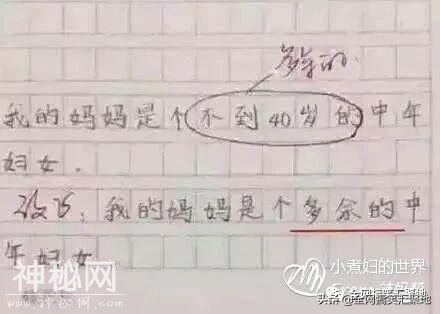 多余的.
我的妈妈是个不到40岁的中年
妇女.
改正:我的妈妈是个多余的中
年妇女
神秘网
小煮妇的世界
头条